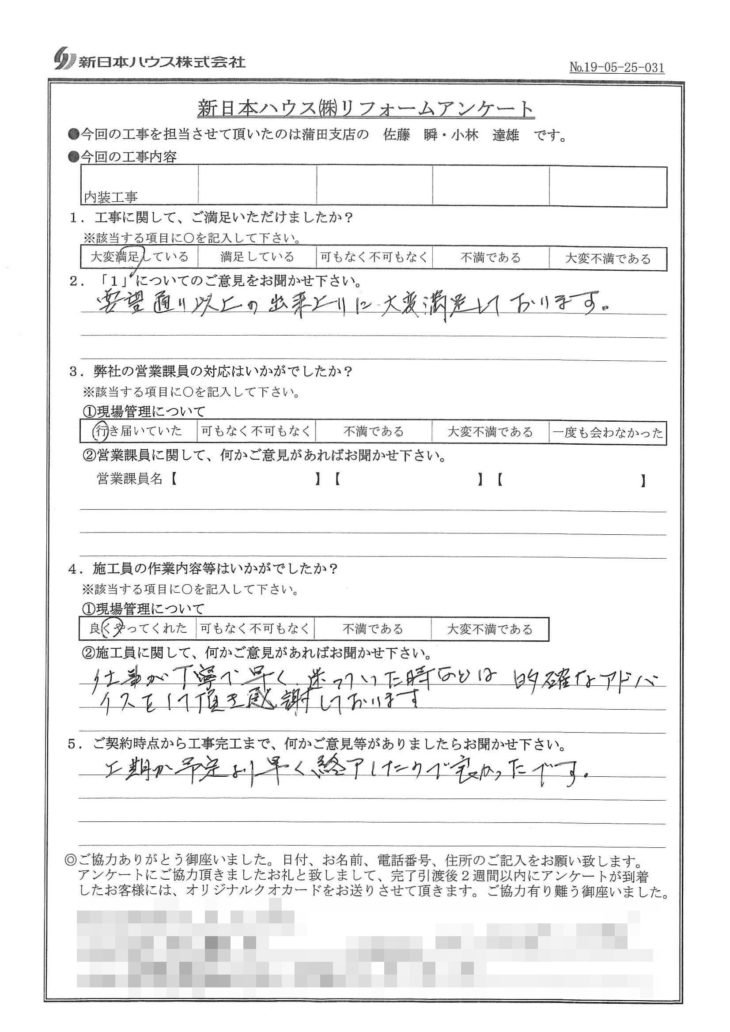 新日本ハウス株式会社
№19-05-25-031
新日本ハウス㈱リフォームアンケート
●今回の工事を担当させて頂いたのは蒲田支店の 佐藤 瞬・小林 達雄 です。
●今回の工事内容
内装工事
1．工事に関して、ご満足いただけましたか？
※該当する項目に○を記入して下さい。
大変満足している 満足している 可もなく不可もなく 不満である 大変不満である
2．「1」についてのご意見をお聞かせ下さい。
要望通り以上の出来上りに大変満足しております。
3．弊社の営業課員の対応はいかがでしたか？
※該当する項目に○を記入して下さい。
①現場管理について
行き届いていた 可もなく不可もなく 不満である 大変不満である 一度も会わなかった
②営業課員に関して、何かご意見があればお聞かせ下さい。
営業課員名【 】【 】【 】
4．施工員の作業内容等はいかがでしたか？
※該当する項目に○を記入して下さい。
①現場管理について
良くやってくれた 可もなく不可もなく 不満である 大変不満である
②施工員に関して、何かご意見があればお聞かせ下さい。
仕事が丁寧で早く、迷っていた時などは 的確なアドバ
イスをして頂き感謝しております
5．ご契約時点から工事完工まで、何かご意見等がありましたらお聞かせ下さい。
工期が予定より早く終了したので良かったです。
◎ご協力ありがとう御座いました。日付、お名前、電話番号、住所のご記入をお願い致します。
アンケートにご協力頂きましたお礼と致しまして、完了引渡後２週間以内にアンケートが到着
したお客様には、オリジナルクオカードをお送りさせて頂きます。ご協力有り難う御座いました。